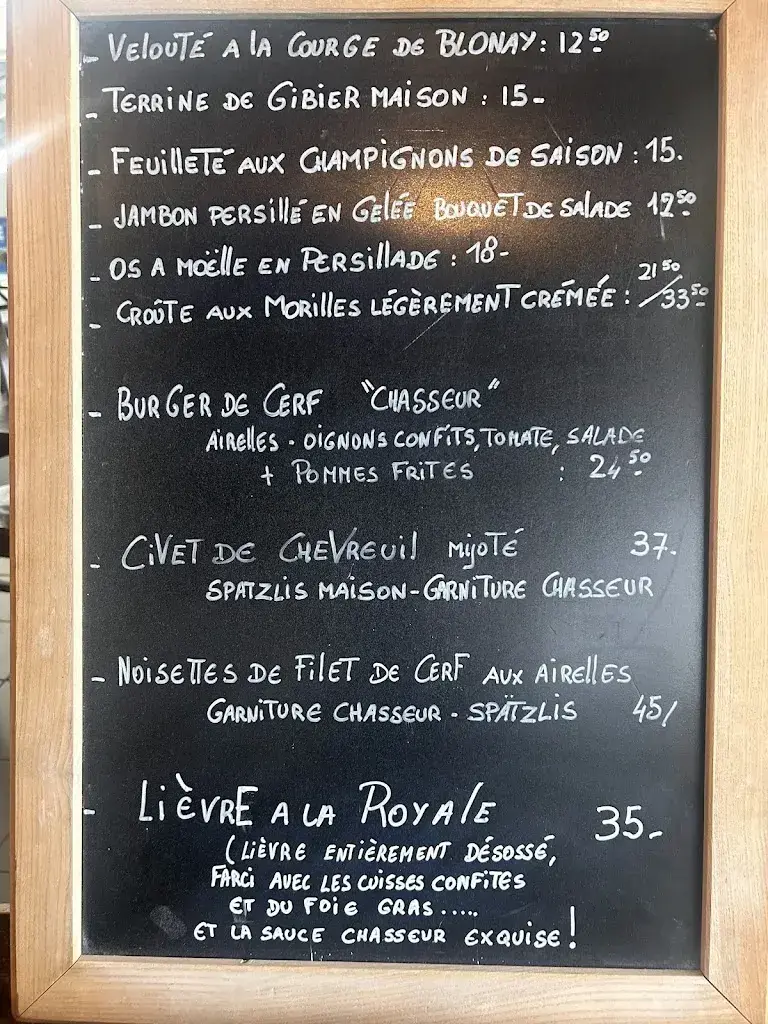 - VELOUTÉ A LA COURGE DE BLONAY : 12 50
- TERRINE DE GIBIER MAISON : 15-
- FEUILLETÉ AUX CHAMPIGNONS DE SAISON : 15.
- JAMBON PERSILLÉ EN GELÉE BOUQUET DE SALADE 12 50
- OS A MOËLLE EN PERSILLADE : 18-
- CROÛTE AUX MORILLES LÉGÈREMENT CRÉMÉE : 21 50 / 33 50
- BURGER DE CERF "CHASSEUR"
AIRELLES - OIGNONS CONFITS, TOMATE, SALADE
+ POMMES FRITES : 24 50
- CIVET DE CHEVREUIL MIJOTÉ 37.
SPATZLIS MAISON - GARNITURE CHASSEUR
- NOISETTES DE FILET DE CERF AUX AIRELLES
GARNITURE CHASSEUR - SPÄTZLIS 45/
- LIÈVRE A LA ROYALE 35-
(LIÈVRE ENTIÈREMENT DÉSOSSÉ,
FARCI AVEC LES CUISSES CONFITES
ET DU FOIE GRAS.....
ET LA SAUCE CHASSEUR EXQUISE !